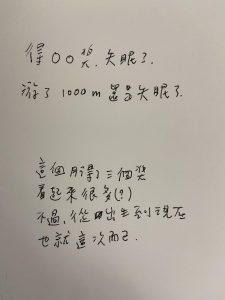 得〇〇獎.失眠了.
游了1000m還是失眠了.
這個月得了三個獎
看起來很多(?)
不過,從出生到現在
也就這次而已.